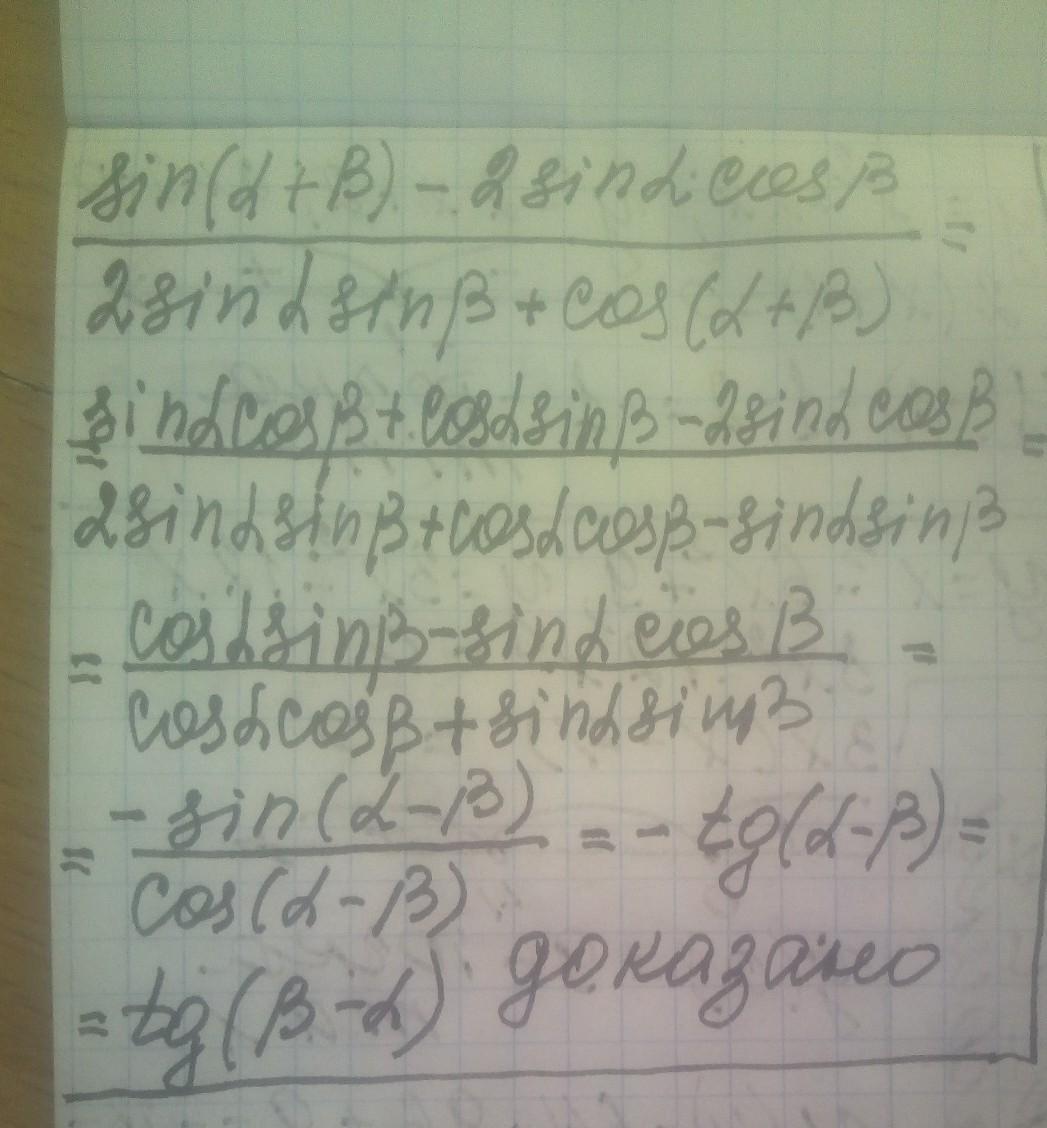 sin(α+β) - 2sinα cosβ =
2sinα sinβ + cos(α+β)
= sinαcosβ + cosαsinβ - 2sinα cosβ =
2sinαsinβ + cosαcosβ - sinαsinβ
= cosαsinβ - sinα cosβ =
cosαcosβ + sinαsinβ
= - sin(α-β) = - tg(α-β) =
cos(α-β)
= tg(β-α) доказано